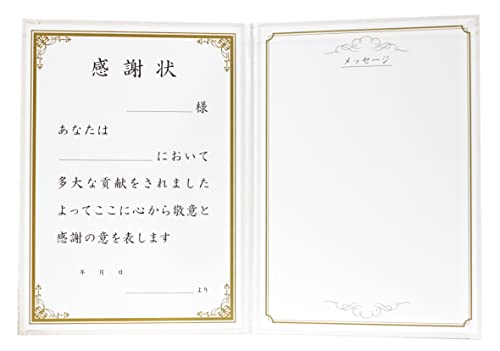 感謝状
様
あなたは
において
多大な貢献をされました
よってここに心から敬意と
感謝の意を表します
年 月 日
より
メッセージ